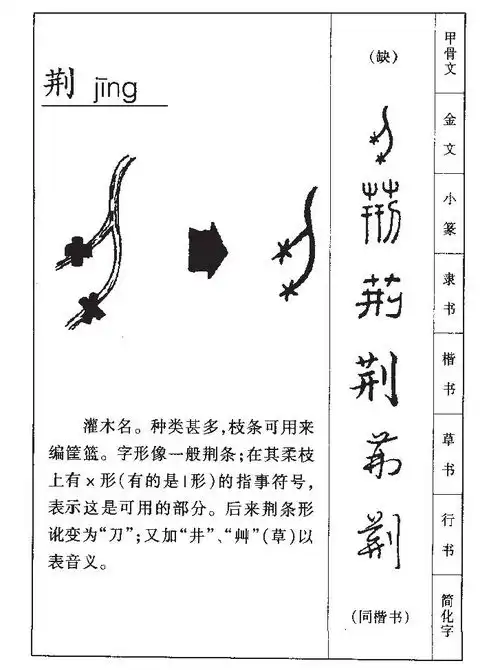 荆 jīng
灌木名。种类甚多，枝条可用来
编筐篮。字形像一般荆条；在其柔枝
上有×形（有的是|形）的指事符号，
表示这是可用的部分。后来荆条形
讹变为“刀”；又加“井”、“艸”（草）以
表音义。
（缺）
荆
荆
荆
荆
荆
（同楷书）
甲骨文
金文
小篆
隶书
楷书
草书
行书
简化字